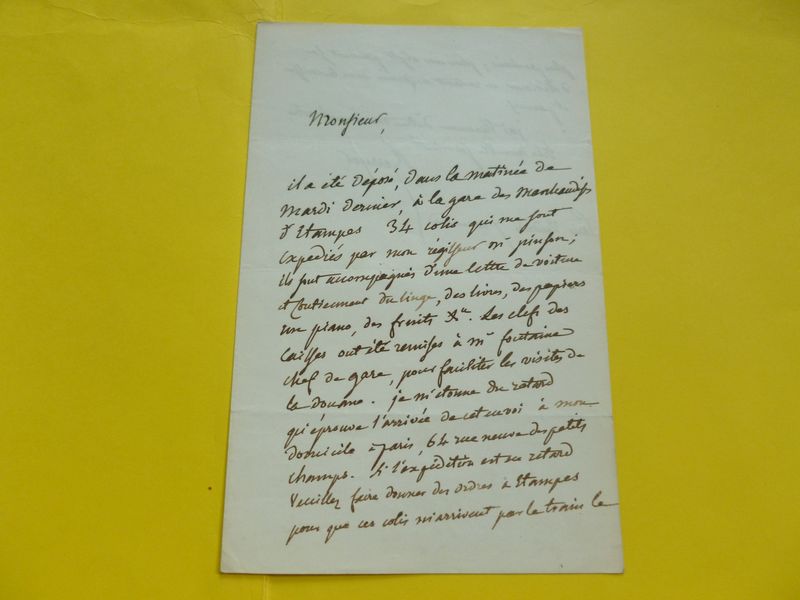 Monsieur,
il a été déposé, dans la matinée de
Mardi dernier, à la gare des Marchandises
d'Etampes 34 colis qui me sont
expédiés par mon régisseur mr pinson;
ils sont accompagnés d'une lettre de voiture
et contiennent du linge, des livres, des papiers
un piano, des fruits &a. Les clefs des
caisses ont été remises à mr fontaine
chef de gare, pour faciliter les visites de
la douane. je m'étonne du retard
qu'éprouve l'arrivée de cet envoi à mon
domicile à paris, 64 rue neuve des petits
champs. Si l'expédition est en retard
Veuillez faire donner des ordres à Etampes
pour que ces colis m'arrivent par le train le